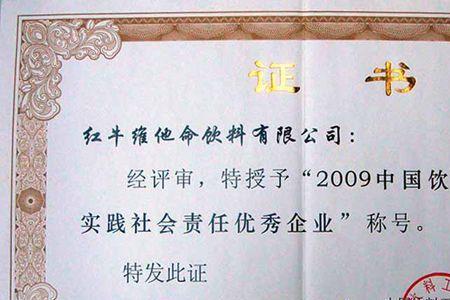 证书
红牛维他命饮料有限公司：
经评审，特授予“2009中国饮
实践社会责任优秀企业”称号。
特发此证
料工